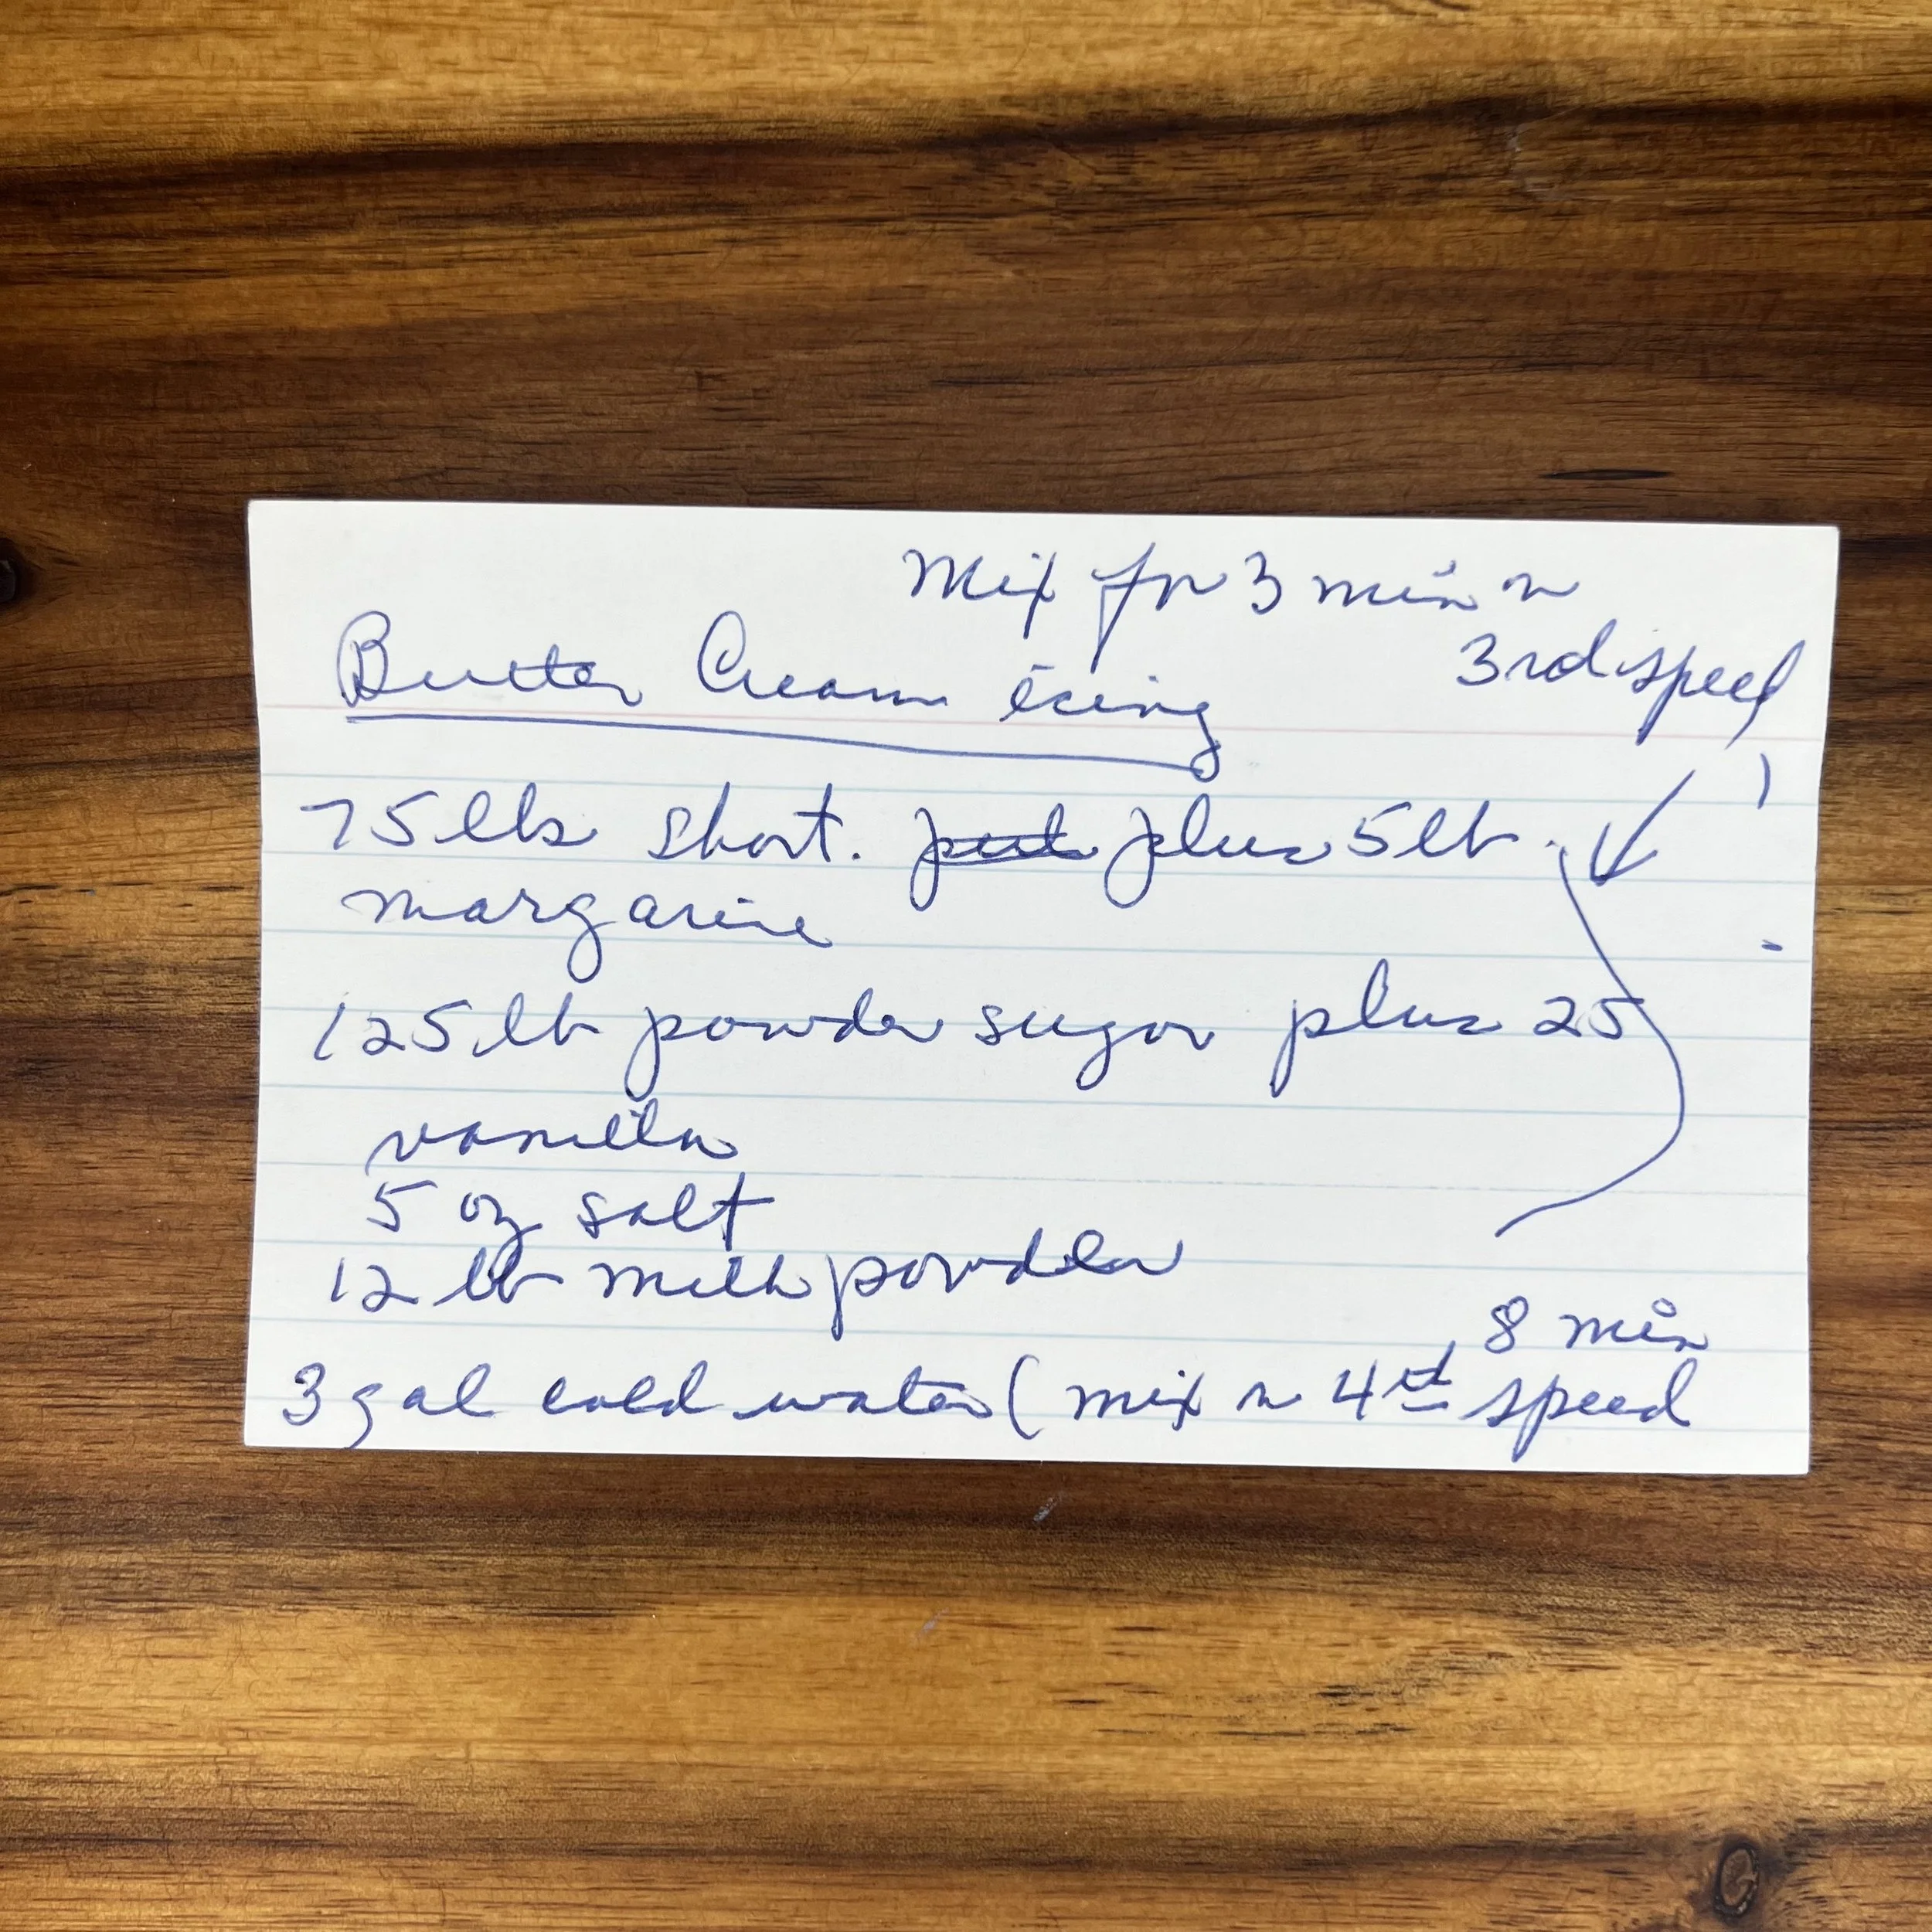 Mix for 3 min n
3rd speed
Butter Cream icing
75 lbs short. plus 5 lb.
margarine
125 lb powder sugar plus 25
vanilla
5 oz salt
12 lb milk powder
8 min
3 gal cold water ( mix n 4rd speed